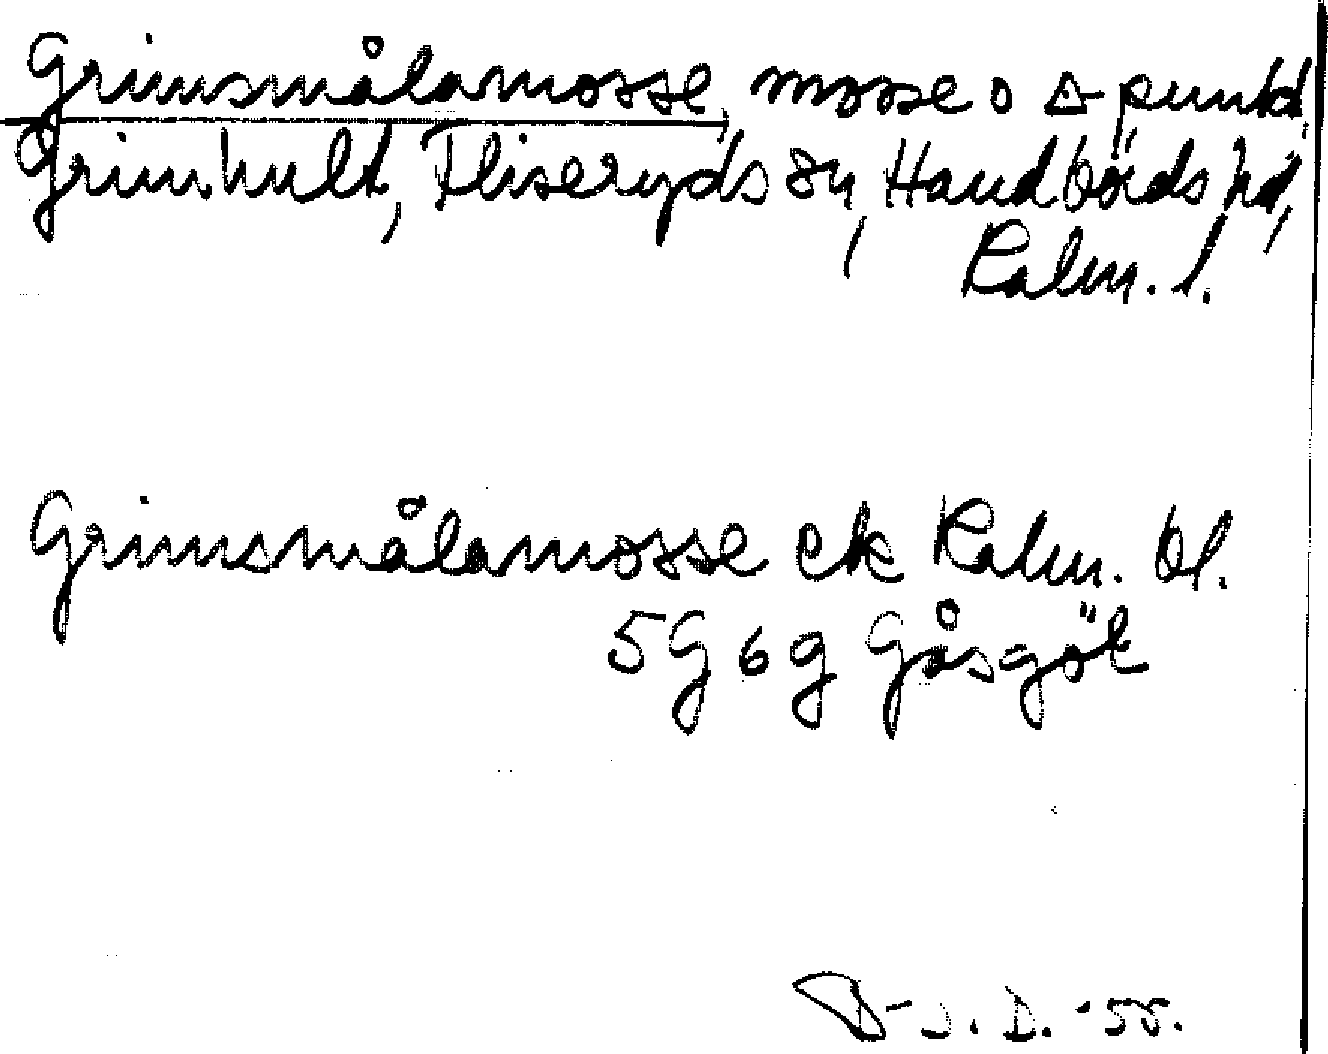 Grimsmålamosse, mosse o △-punkt
Grimhult, Fliseryds sn, Handbörds hd,
Kalm. l.
Grimsmålamosse ek Kalm. bl.
5G 6g Gåsgöl
J. D. -55.